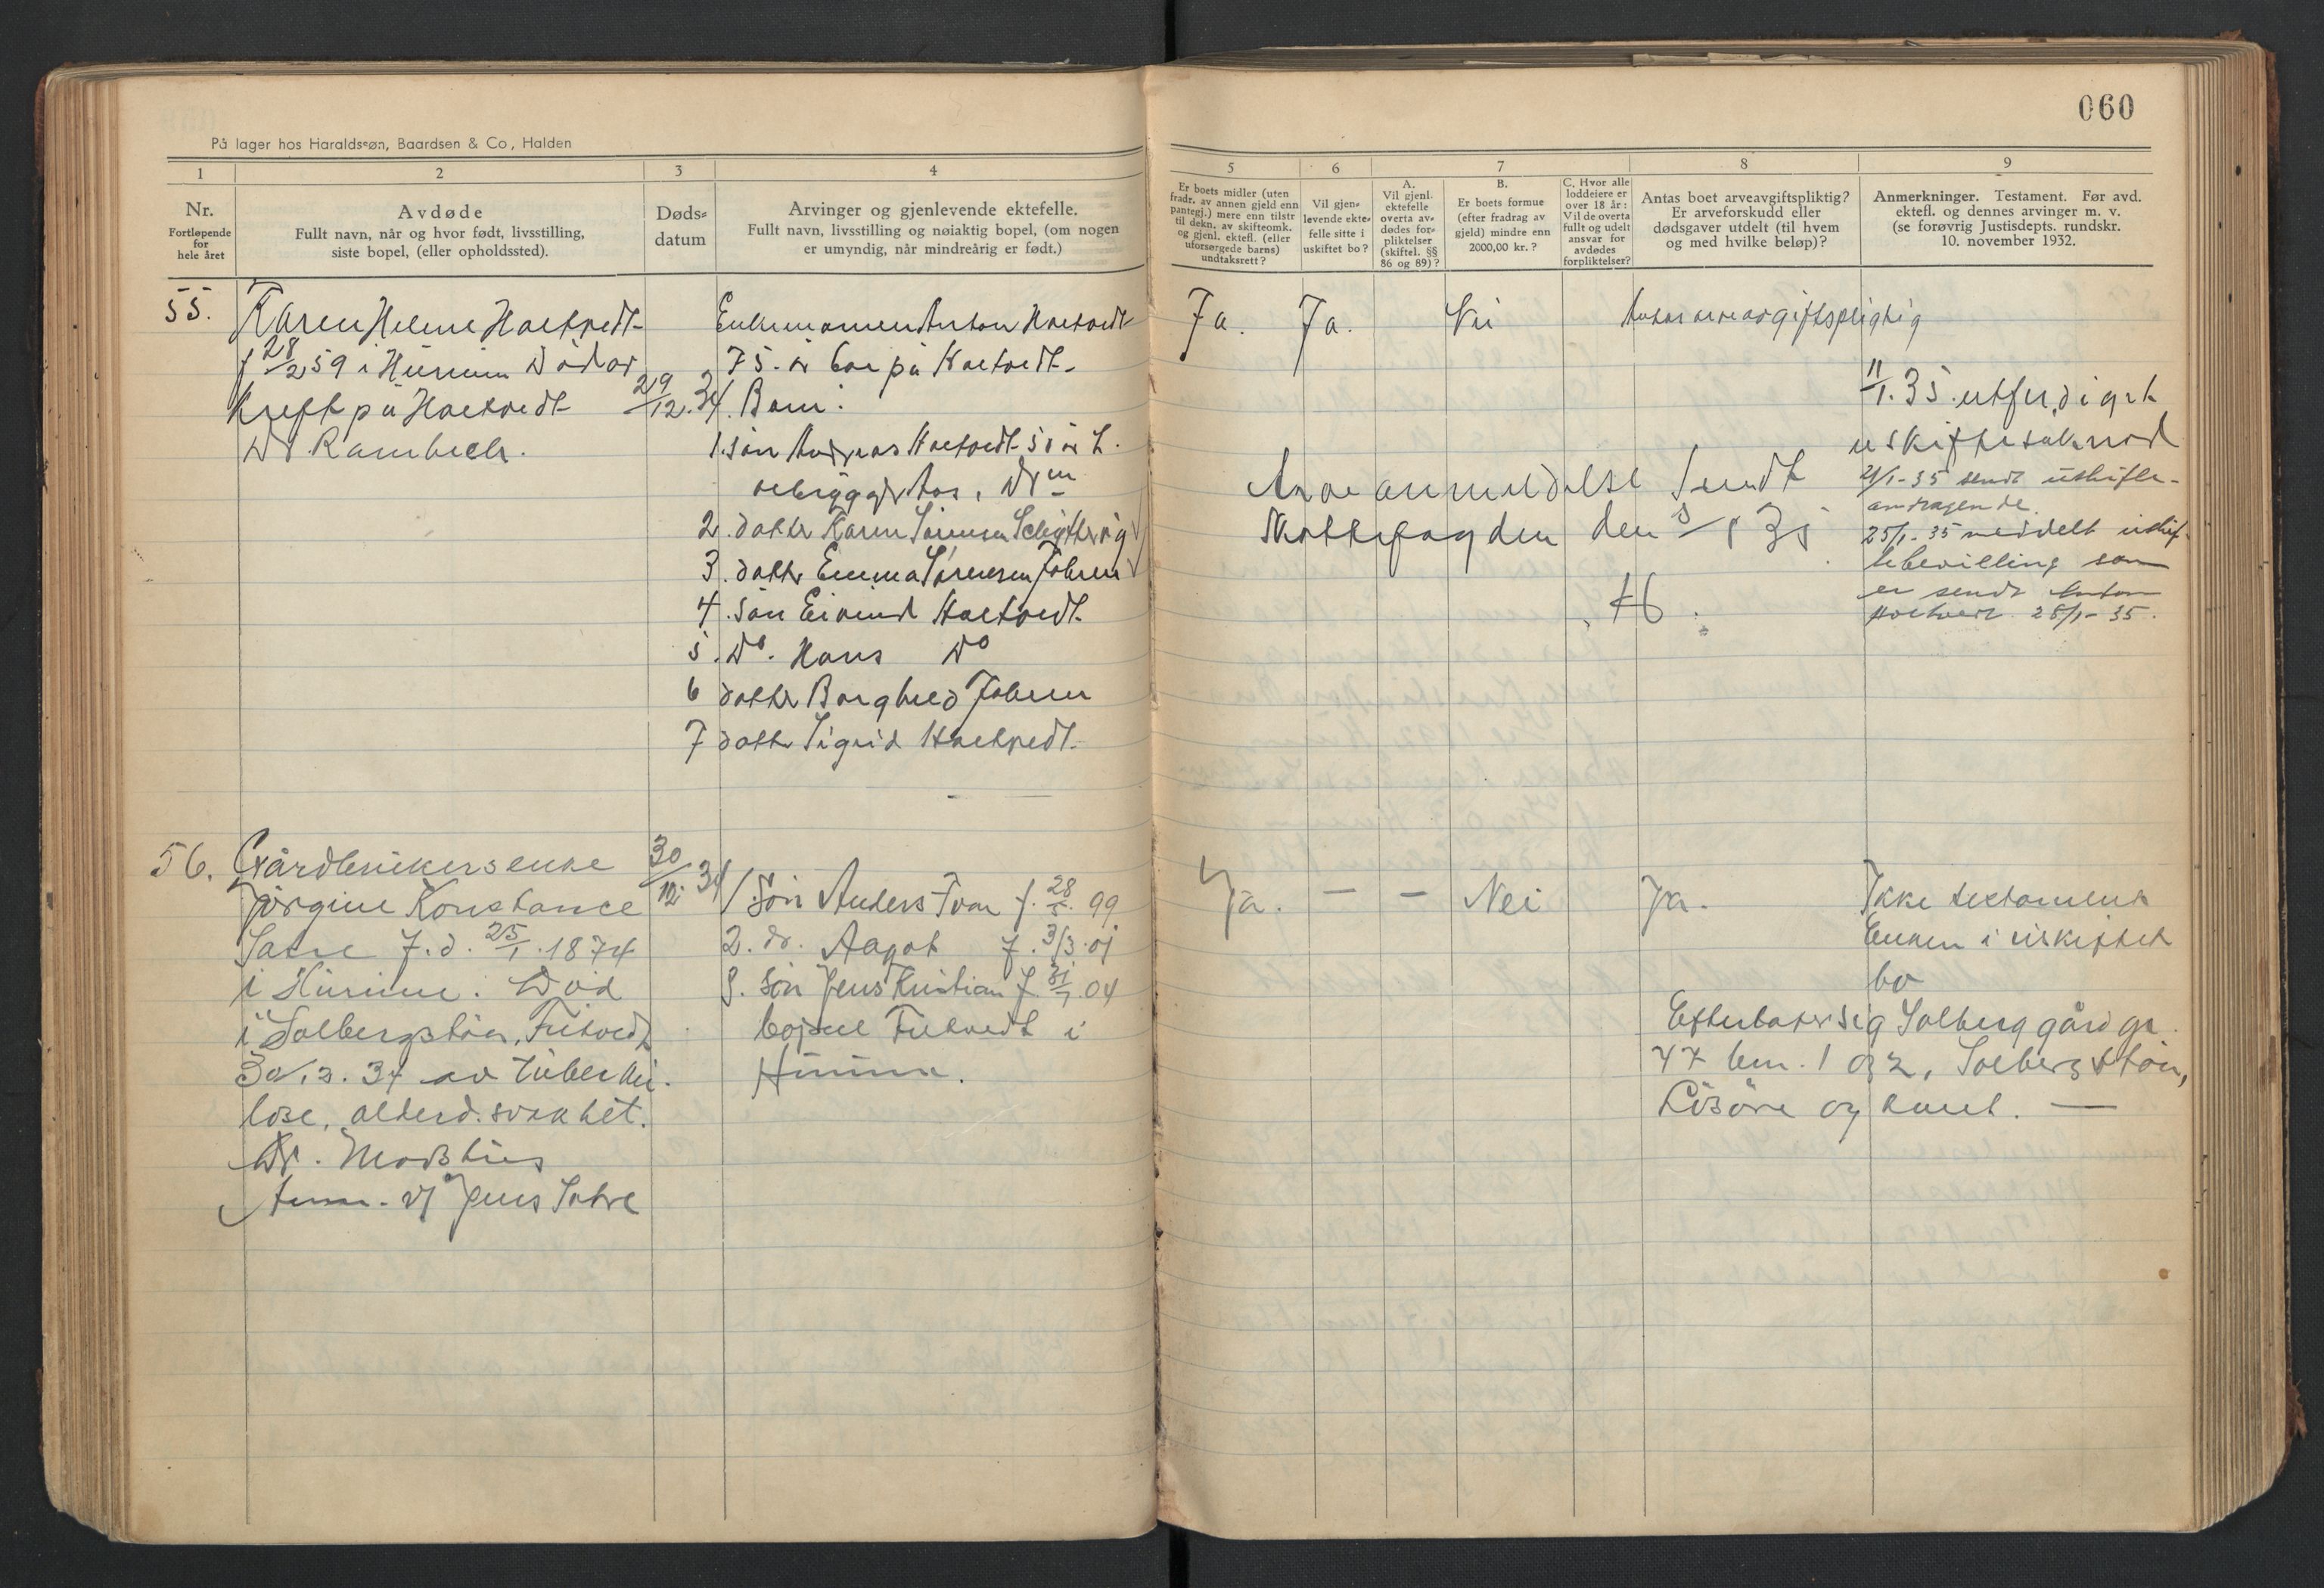 060
På lager hos Haraldssøn, Baardsen & Co, Halden
1 2 3 4
Nr.
Fortløpende
for
hele året
Avdøde
Fullt navn, når og hvor født, livsstilling,
siste bopel, (eller opholdssted).
Døds-
datum
Arvinger og gjenlevende ektefelle.
Fullt navn, livsstilling og nøiaktig bopel, (om nogen
er umyndig, når mindreårig er født.)
5 6 7 8 9
Er boets midler (uten
fradr. av annen gjeld enn
pantegj.) mere enn tilstr
til dekn. av skifteomk.
og gjenl. ektefl. (eller
uforsørgede barns)
undtaksrett?
Vil gjen-
levende ekte-
felle sitte i
uskiftet bo?
A.
Vil gjenl.
ektefelle
overta av-
dødes for-
pliktelser
(skiftel. §§
86 og 89)?
B.
Er boets formue
(efter fradrag av
gjeld) mindre enn
2000,00 kr.?
C. Hvor alle
loddeiere er
over 18 år:
Vil de overta
fullt og udelt
ansvar for
avdødes
forpliktelser?
Antas boet arveavgiftspliktig?
Er arveforskudd eller
dødsgaver utdelt (til hvem
og med hvilke beløp)?
Anmerkninger. Testament. Før avd.
ektefl. og dennes arvinger m. v.
(se forøvrig Justisdepts. rundskr.
10. november 1932.
55.
Karen Helene Holtvedt
f 28/2 59 i Hurum Död av
Kreft på Holtvedt
Dr. Rambech.
29/12. 34.
Enkemannen Anton Holtvedt
75 år bor på Holtvedt
Barn:
1. sön Andreas Holtvedt
2. datter Karen Sörensen
3. datter Emma Sörensen
4. sön Eivind Holtvedt
5. Do. Hans Do
6 datter Borghild
7 datter Sigrid Holtvedt.
Ja. Ja. Nei
Antas arveavgiftspligtig
11/1. 35. utferdiget
uskifteattest
Arveanmeldelse sendt
Skattefogden den
21/1-35 sendt uskifte-
andragende.
25/1-35 meddelt uskif-
tebevilling som
er sendt Anton
Holtvedt 25/1-35.
56.
Gårdbrukersenke
Jörgine Konstance
Sætre f.d. 25/1. 1874
i Hurum. Död
i Solbergstöa, Filtvedt
30/12. 34 av tuberku-
lose, alderd. svakhet.
Dr.
Anm. v/ Jens Sætre
30/12 34
1 Sön Anders Ivar f. 28/5. 99
2. dr. Aagot f. 3/3. 01
3. Sön Jens Kristian f. 31/7. 04
bopæl Filtvedt i
Hurum.
Ja. — — Nei Ja.
Ikke testament
Enken i uskiftet
bo
Efterlater sig Solberg gård gr.
47 bn. 1 og 2, Solbergstöa,
Lösöre og kont. —